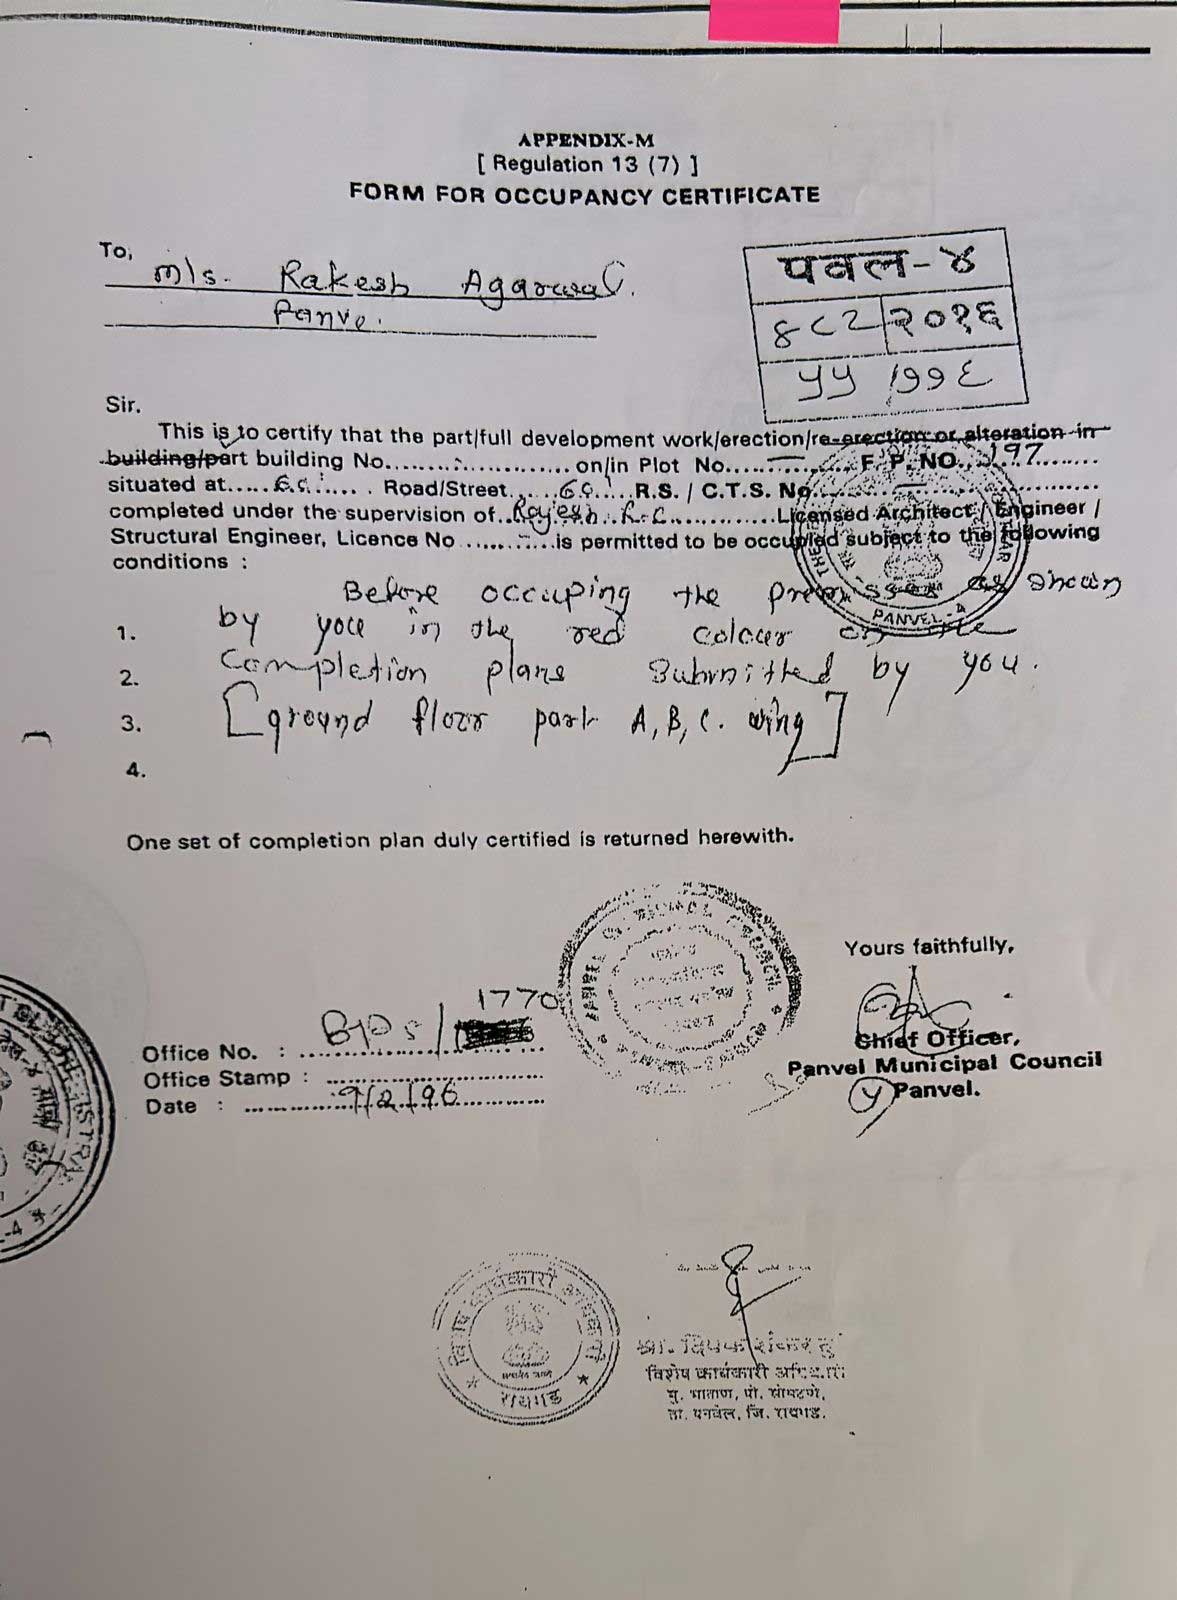 APPENDIX-M
[ Regulation 13 (7) ]
FORM FOR OCCUPANCY CERTIFICATE
To,
M/s. Rakesh Agarwal.
Panve.
पवल-४
४८२ २०१६
५५ /११६
Sir.
This is to certify that the part/full development work/erection/re-erection or alteration in
building/part building No.......... on/in Plot No..... – ..... F. P. NO. 197........
situated at..... ........ Road/Street....... ..... R.S. / C.T.S. No..... – .....
completed under the supervision of..Rajesh. R.C............Licensed Architect / Engineer /
Structural Engineer, Licence No ....... – ....is permitted to be occupied subject to the following
conditions :
Before occuping the premisses as shown
1. by you in the red colour on the
2. Completion plans submitted by you.
3. [ground floor part A, B, C. wing]
4.
One set of completion plan duly certified is returned herewith.
PANVEL-4
Yours faithfully,
1770
Office No. : BPS/
Chief Officer,
Office Stamp : ..............................
Panvel Municipal Council
Date : ............9/2/96...............
Panvel.
विशेष कार्यकारी अधिकारी
रायगड
विशेष कार्यकारी अधिकारी
ता. पनवेल, जि. रायगड.